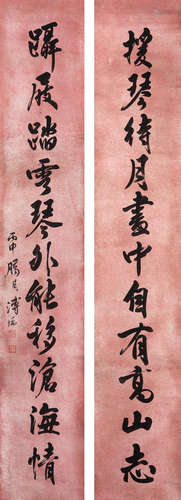 援琴待月畫中自有高山志
躡屐踏雲琴外能移滄海情
丙申勝月溥儒